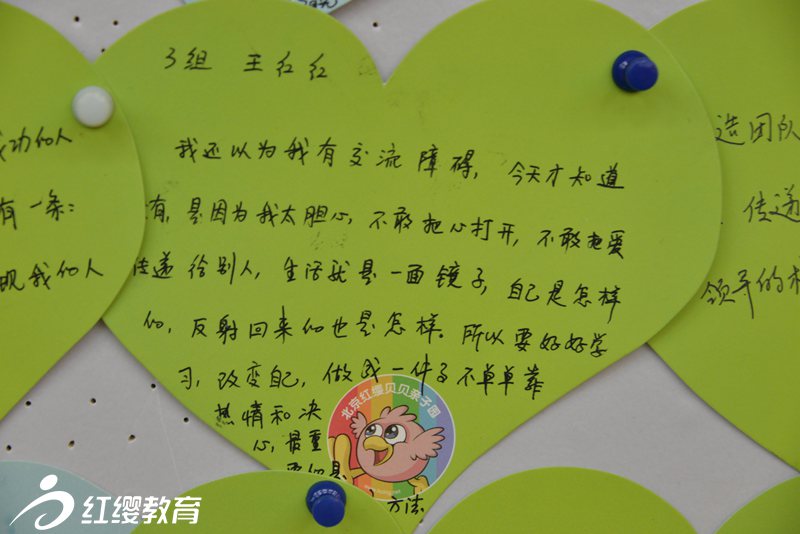 3组 王红红
我还以为我有交流障碍,今天才知道
有,是因为我太胆心,不敢把心打开,不敢把爱
传递给别人,生活就是一面镜子,自己是怎样
的,反射回来的也是怎样。所以要好好学
习,改变自己,做成一件事不单单靠
热情和决
心,最重
要的是
方法.
成功的人
有一条:
现我们人
造团队
传递
领导的
北京红缨贝贝亲子园
红缨教育